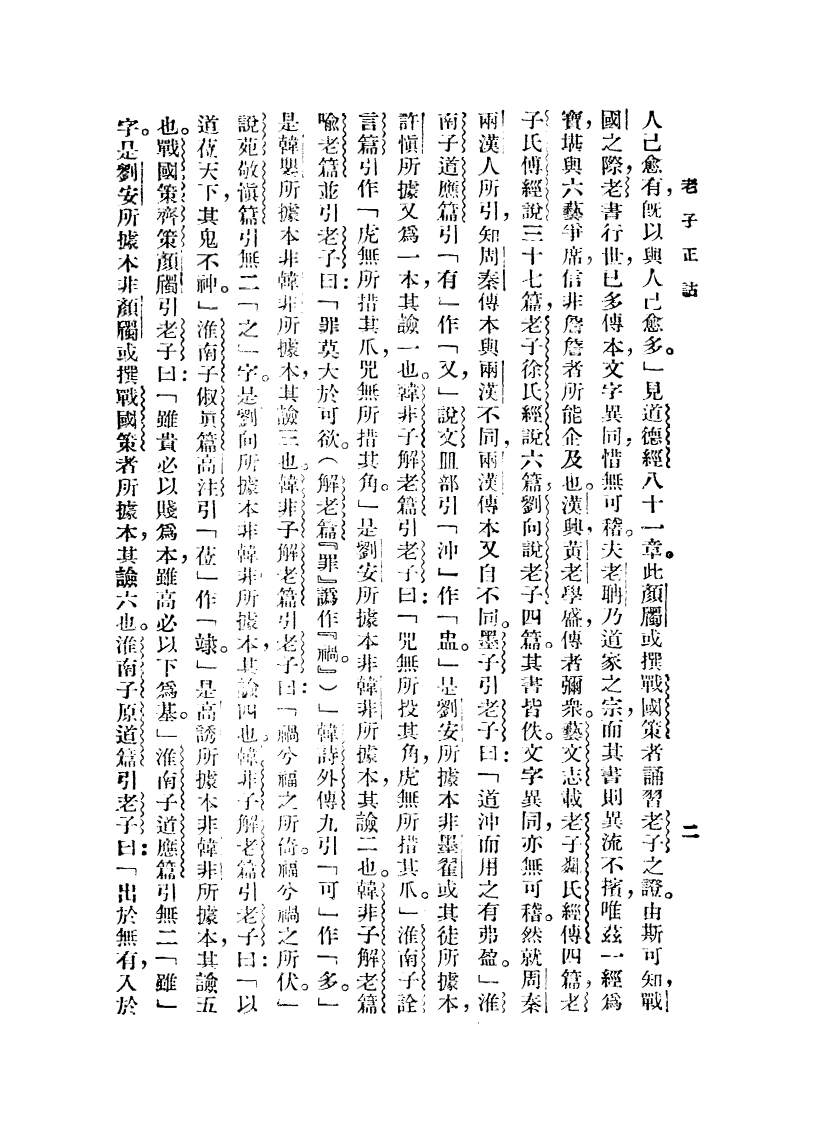 老子正詁
二
人己愈有，旣以與人己愈多。」見道德經八十一章。此顏斶或撰戰國策者誦習老子之證。由斯可知，戰
國之際，老書行世，已多傳本，文字異同，惜無可稽。夫老聃乃道家之宗，而其書則異流不擯，唯茲一經爲
寶，堪與六藝爭席，信非詹詹者所能企及也。漢興，黃老學盛，傳者彌衆。藝文志載老子鄰氏經傳四篇，老
子氏傅經說三十七篇，老子徐氏經說六篇，劉向說老子四篇。其書皆佚。文字異同，亦無可稽。然就周秦
兩漢人所引，知周秦傳本與兩漢不同，兩漢傳本又自不同。墨子引老子曰：「道沖而用之有弗盈。」淮
南子道應篇引「有」作「又，」說文皿部引「沖」作「盅。」是劉安所據本非墨翟或其徒所據本，
許愼所據又爲一本，其譣一也。韓非子解老篇引老子曰：「兕無所投其角，虎無所措其爪。」淮南子詮
言篇引作「虎無所措其爪，兕無所措其角。」是劉安所據本非韓非所據本，其譣二也。韓非子解老篇
喩老篇並引老子曰：「罪莫大於可欲。（解老篇『罪』譌作『禍。』）」韓詩外傳九引「可」作「多。」
是韓嬰所據本非韓非所據本，其譣三也。韓非子解老篇引老子曰：「禍兮福之所倚。福兮禍之所伏。」
說苑敬愼篇引無二「之」字。是劉向所據本非韓非所據本，其譣四也。韓非子解老篇引老子曰：「以
道莅天下，其鬼不神。」淮南子俶眞篇高注引「莅」作「竦。」是高誘所據本非韓非所據本，其譣五
也。戰國策齊策顏斶引老子曰：「雖貴必以賤爲本，雖高必以下爲基。」淮南子道應篇引無二「雖」
字。是劉安所據本非顏斶或撰戰國策者所據本，其譣六也。淮南子原道篇引老子曰：「出於無有，入於